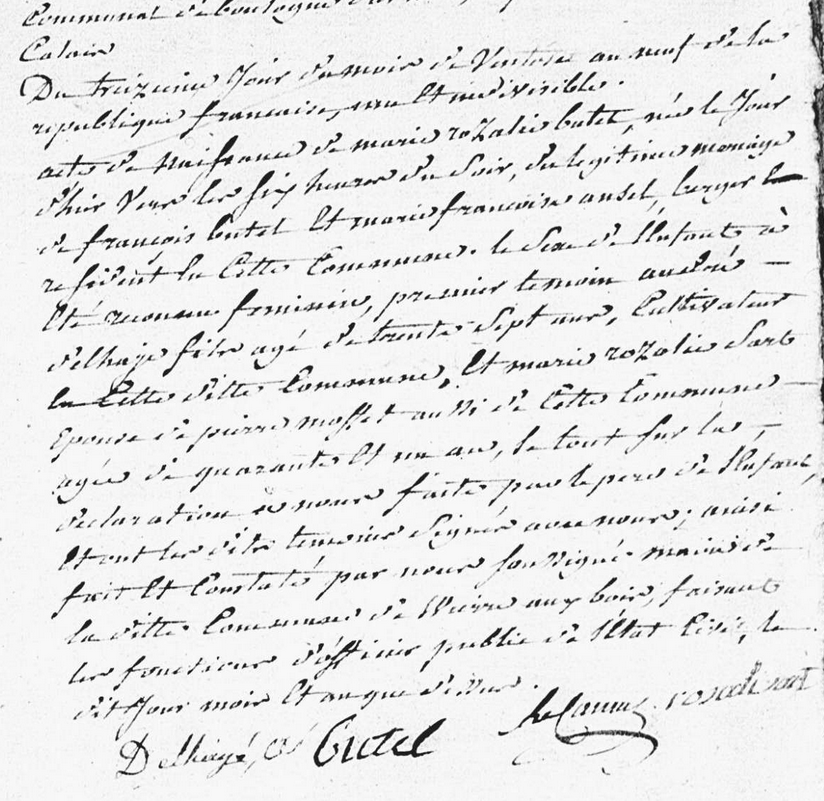 Communal de boulogne
Calais
Du treizieme Jour du mois de Ventose an neuf de la
republique francaise, une Et indivisible.
acte de Naissance de marie rozalie butel, née le Jour
d'hier Vers les six heures du Soir, du legitime mariage
de françois butel Et marie francoise ansel, berger Et
residents En Cette Commune. le Sexe de l'Enfant à
Eté reconnu feminin, premier temoin
delhaye fils agé de trente Sept ans, Cultivateur
En Cette ditte Commune, Et marie rozalie Sart
Epouse de pierre mosset aussi de Cette Commune
agée de quarante Et un an, le tout sur la
declaration a nous faite par le pere de l'Enfant,
Et ont les dits temoins Signés avec nous; ainsi
fait Et Constaté par nous soussigné maire de
la ditte Commune de Wierre aux bois, faisant
les fonctions d'officier public de l'Etat Civil, le
dit Jour mois Et an que dessus.
Delhayé, butel